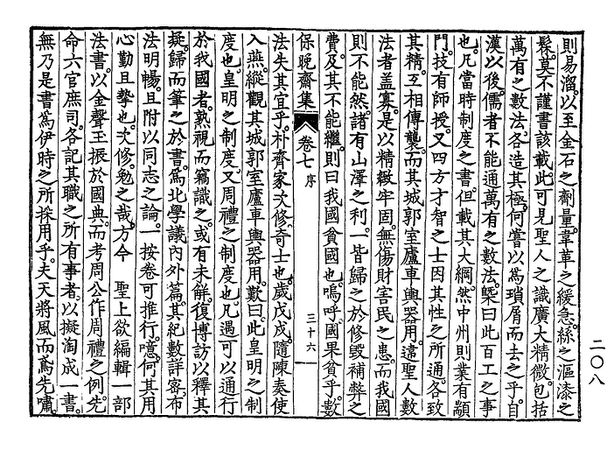 則易溜。以至金石之劑量。韋革之緩急。絲之漚漆之
髹。莫不謹書該載。此可見聖人之識廣大精微。包括
萬有之數法。各造其極。何嘗以為瑣屑而去之乎。自
漢以後。儒者不能通萬有之數法。槩曰此百工之事
也。凡當時制度之書。但載其大綱。然中州則業有顓
門。技有師授。又四方才智之士。因其性之所通。各致
其精。互相傳襲。而其城郭室廬車輿器用。遠聖人數
法者盖寡。是以精緻牢固。無傷財害民之患。而我國
則不能然。諸有山澤之利。一皆歸之於修毀補弊之
費。及其不能繼。則曰我國貧國也。嗚呼。國果貧乎。數
保晚齋集
卷七 序
三十六
法失其宜乎。朴齊家次修奇士也。歲戊戌。隨陳奏使
入燕。縱觀其城郭室廬車輿器用。歎曰。此皇明之制
度也。皇明之制度。又周禮之制度也。凡遇可以通行
於我國者。熟視而竊識之。或有未解。復博訪以釋其
疑。歸而筆之於書。為北學議內外篇。其紀數詳密。布
法明暢。且附以同志之論。一按卷可推行。噫。何其用
心勤且摯也。次修。勉之哉。方今 聖上欲編輯一部
法書。以金聲玉振於國典。而考周公作周禮之例。先
命六官庶司。各記其職之所有事者。以擬淘成一書。
無乃是書為伊時之所採用乎。夫天將風而鳶先嘯。
二〇八